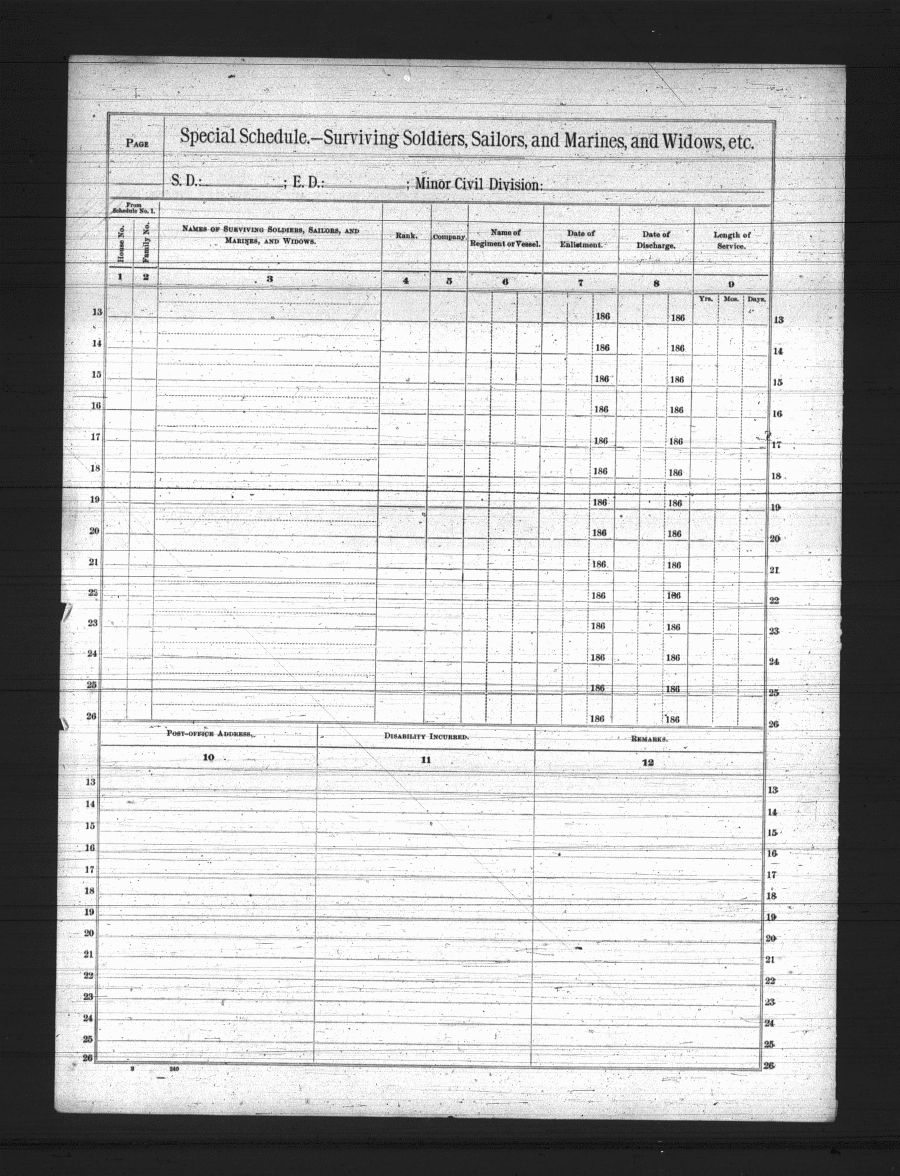 PAGE
Special Schedule.—Surviving Soldiers, Sailors, and Marines, and Widows, etc.
S. D.: ; E. D.: ; Minor Civil Division:
From Schedule No. 1.
House No.
Family No.
NAMES OF SURVIVING SOLDIERS, SAILORS, AND MARINES, AND WIDOWS.
Rank.
Company.
Name of Regiment or Vessel.
Date of Enlistment.
Date of Discharge.
Length of Service.
1 2 3 4 5 6 7 8 9
Yrs. Mos. Days.
13 186 186 13
14 186 186 14
15 186 186 15
16 186 186 16
17 186 186 17
18 186 186 18
19 186 186 19
20 186 186 20
21 186 186 21
22 186 186 22
23 186 186 23
24 186 186 24
25 186 186 25
26 186 186 26
POST-OFFICE ADDRESS. DISABILITY INCURRED. REMARKS.
10 11 12
13 13
14 14
15 15
16 16
17 17
18 18
19 19
20 20
21 21
22 22
23 23
24 24
25 25
26 26
240